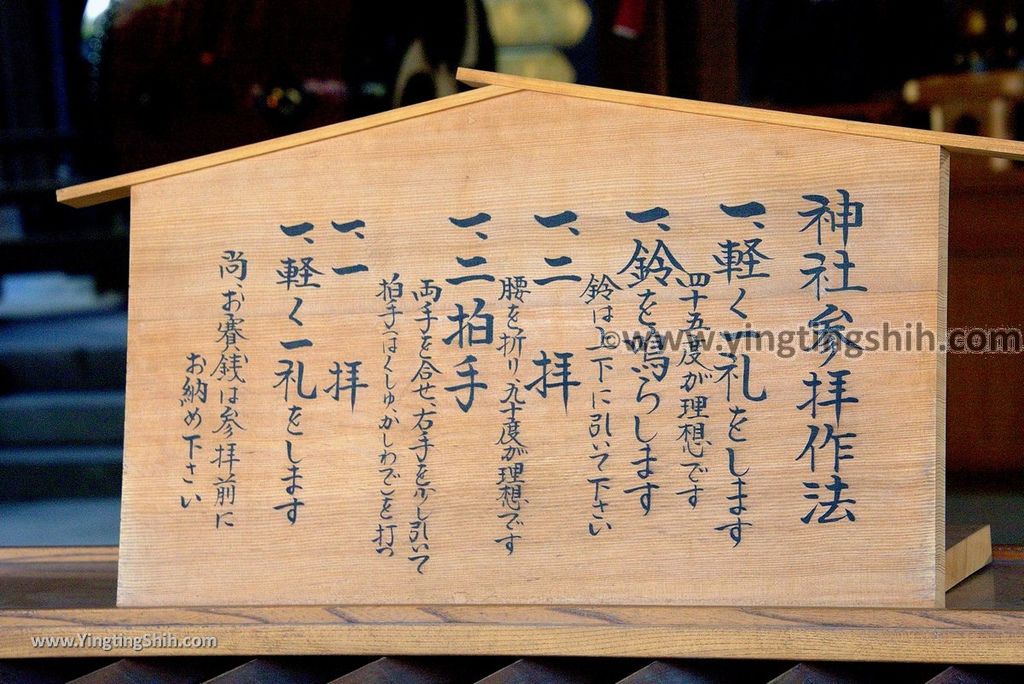 神社参拝作法
一、軽く一礼をします
四十五度が理想です
一、鈴を鳴らします
鈴は上下に引いて下さい
一、二拝
腰を折り九十度が理想です
一、二拍手
両手を合せ、右手を少し引いて
拍手(はくしゅ、かしわで)を打つ
一、一拝
一、軽く一礼をします
尚、お賽銭は参拝前に
お納め下さい
©www.yingtingshih.com
www.YingtingShih.com